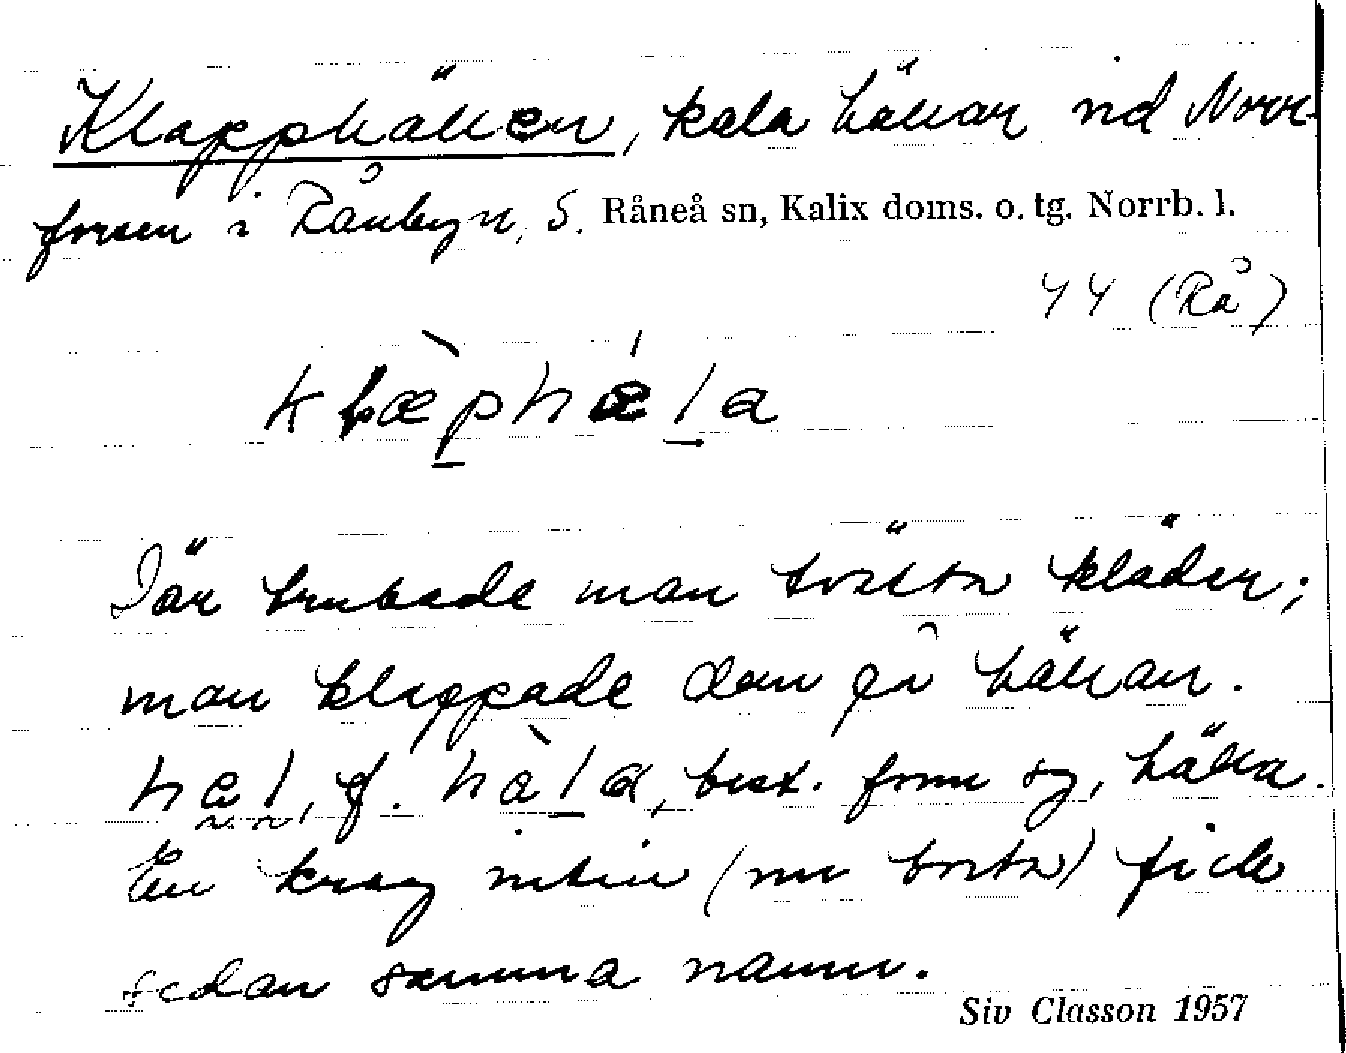 Klapphällen, kala hällar vid Norr-
forsen i Rånbyn, S. Råneå sn, Kalix doms. o. tg. Norrb. l.
44 (Rå)
Där brukade man tvätta kläder;
man klappade dem på hällar.
best. form sg. hälla.
En krog intill (nu borta) fick
sedan samma namn.
Siv Classon 1957